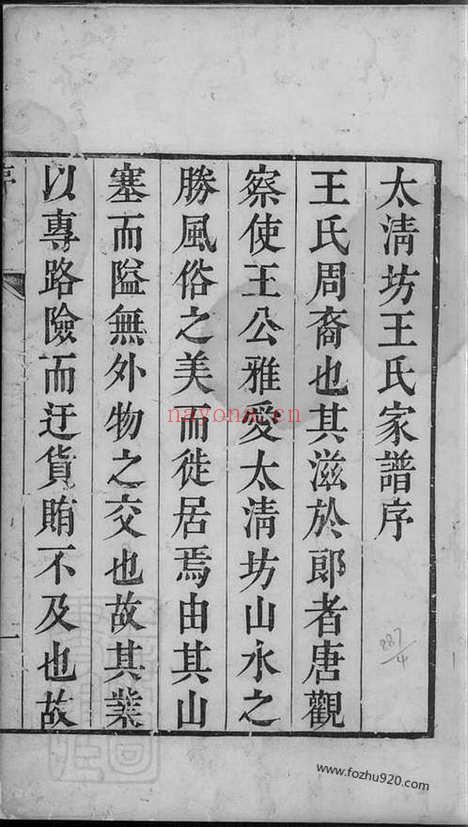 太淸坊王氏家譜序
王氏周裔也其滋於郎者唐觀
察使王公雅愛太淸坊山水之
勝風俗之美而徙居焉由其山
塞而隘無外物之交也故其業
以專路險而迂貨賄不及也故
序
一
887/4
nayona.cn
www.fozhu920.com